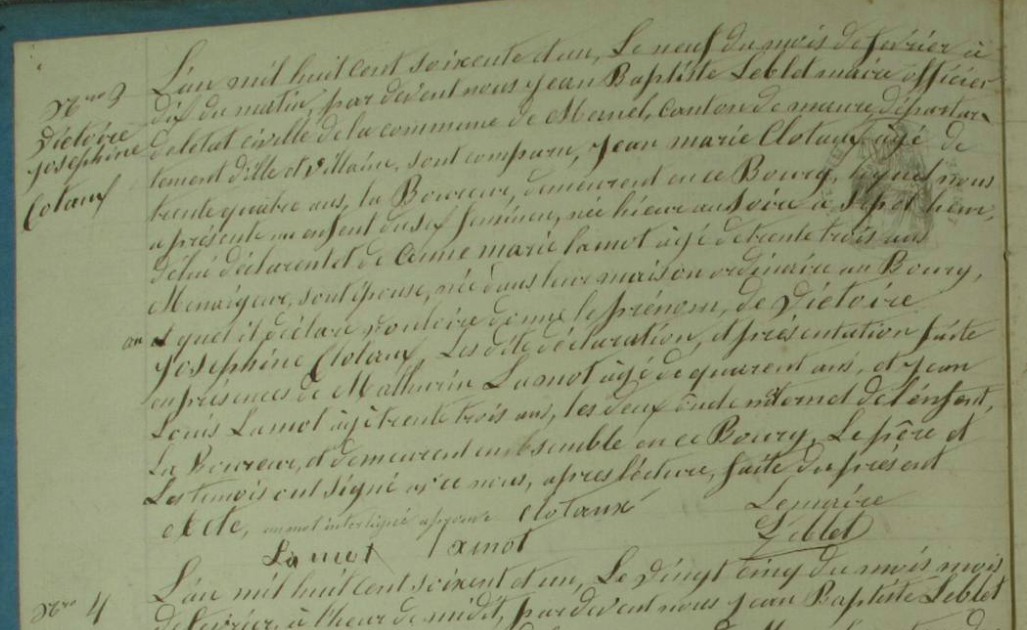 Nro 3
Victoire
josephine
Clotaux
L'an mil huit cent soixente et un, Le neuf du mois de fevrier à
dix du matin, par devent nous jean Baptiste Leblet maire officier
de letat civille de la commune de Mernel, canton de maure, départar-
tement d'ille et vilaine, sont comparu, jean marie Clotaux, âgé de
trente quatre ans, la Boureur, demeurent en ce Bourg, lequel nous
a présenté un enfent du sexe féminin, née hiere au soire à sept heure,
de lui déclarent et de Anne marie lamot âgé de trente trois ans
Menaigeur, sont épouse, née dans leur maison ordinaire au Bourg,
au quel il déclare vouloire donne le prénom, de Victoire
josephine Clotaux, Les dite déclaration, et présentation faite
en présences de Mathurin Lamot âgé de quarent ans, et jean
Louis Lamot âgé trente trois ans, les deux oncle maternel de l'enfent,
La Boureur, et demeurent en semble en ce Bourg, Le père et
Les temois ont signé avec nous, apres lécture, faite du présent
acte, un mot interligné approuvé clotaux Lemaire
Lamot Lamot Leblet
Nro 4
L'an mil huit cent soixent et un, Le vingt cinq du mois mois
de fevrier, à l'heur de midit, par devent nous jean Baptiste Leblet